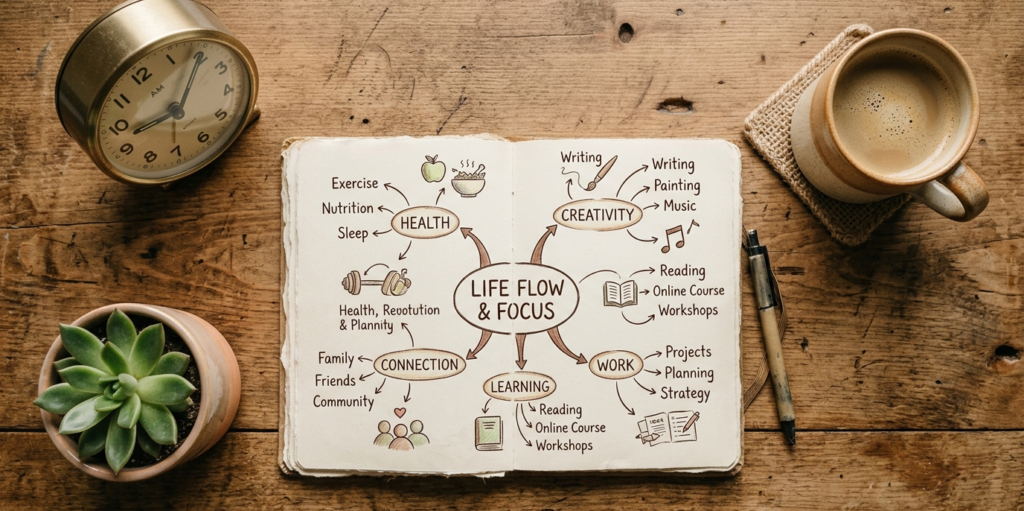 11 12
AM
10
8
7
6
5
3
Exercise
Nutrition
Sleep
HEALTH
Health, Revotution
& Plannity
Family
Friends
Community
CONNECTION
LIFE FLOW
& FOCUS
Writing
Writing
Painting
Music
CREATIVITY
Reading
Online Course
Workshops
WORK
Projects
Planning
Strategy
LEARNING
Reading
Online Course
Workshops